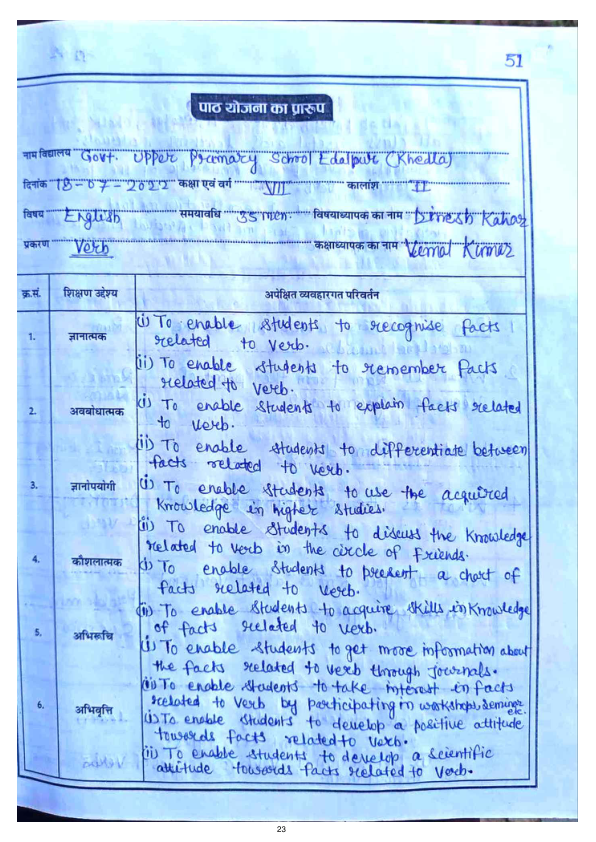 51
पाठ योजना का प्रारूप
नाम विद्यालय Govt. Upper Primary School Edalpur (Khedla)
दिनांक 18-07-2022 कक्षा एवं वर्ग VII कालांश II
विषय English समयावधि 35 min. विषयाध्यापक का नाम Dinesh Kahar
प्रकरण Verb कक्षाध्यापक का नाम Vimal Kumar
क्र.सं. शिक्षण उद्देश्य अपेक्षित व्यवहारगत परिवर्तन
1. ज्ञानात्मक (i) To enable students to recognise facts
related to verb.
(ii) To enable students to remember facts
related to verb.
2. अवबोधात्मक (i) To enable students to explain facts related
to verb.
(ii) To enable students to differentiate between
facts related to verb.
3. ज्ञानोपयोगी (i) To enable students to use the acquired
Knowledge in higher studies.
(ii) To enable students to discuss the Knowledge
related to verb in the circle of friends.
4. कौशलात्मक (i) To enable students to present a chart of
facts related to verb.
(ii) To enable students to acquire skills in Knowledge
of facts related to verb.
5. अभिरूचि (i) To enable students to get more information about
the facts related to verb through Journals.
(ii) To enable students to take interest in facts
related to verb by participating in workshop, seminar etc.
6. अभिवृत्ति (i) To enable students to develop a positive attitude
towards facts related to verb.
(ii) To enable students to develop a scientific
attitude towards facts related to verb.
23